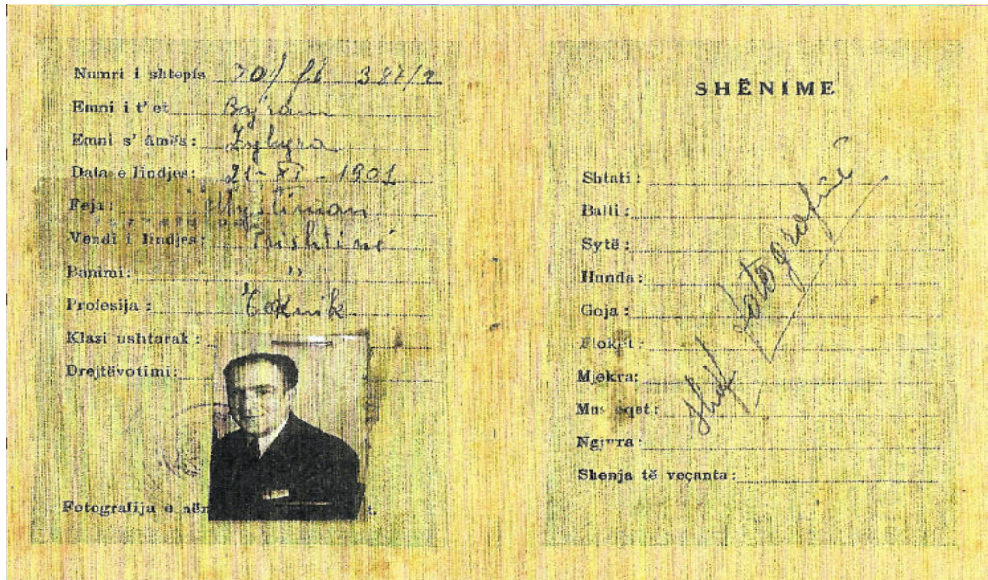 Numri i shtëpis 70/
Emni i t' et Bajram
Emni s' âmës: Zylyra
Data e lindjes: 21-XI-1901
Feja: Mysliman
Vendi i lindjes: Prishtinë
Banimi: "
Profesija: Teknik
Klasi ushtarak:
Drejtëvotimi:
Fotografija e nën
SHËNIME
Shtati:
Balli:
Sytë:
Hunda:
Goja:
Flokët:
Mjekra:
Mustaqet:
Ngjyra:
Shenja të veçanta:
Shif fotografinë